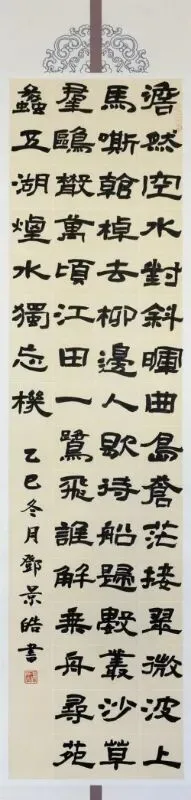 澹然空水對斜暉曲島蒼茫接翠微波上
馬嘶看棹去柳邊人歇待船歸數叢沙草
羣鷗散萬頃江田一鷺飛誰解乘舟尋苑
蠡五湖煙水獨忘機
乙巳冬月鄧景皓書